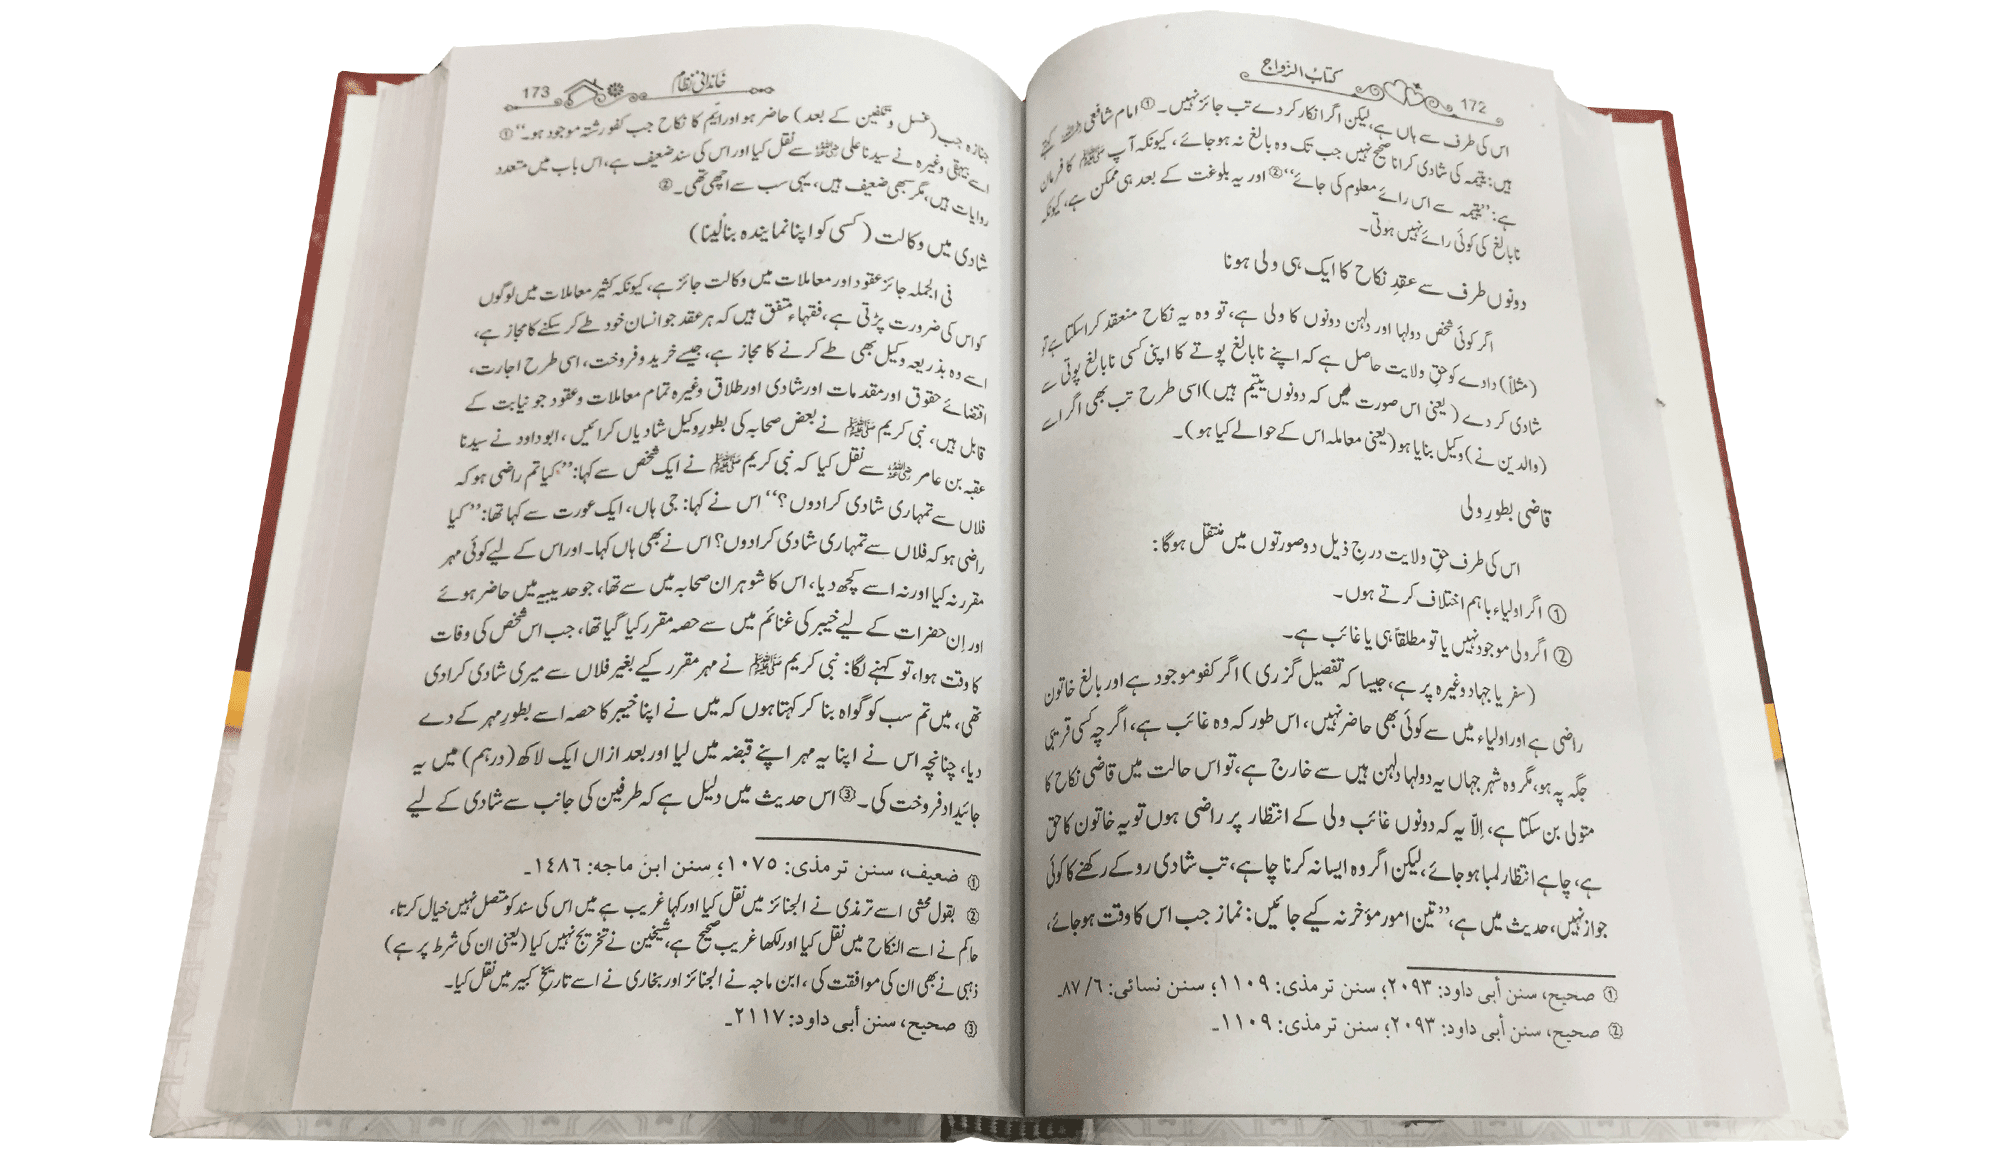 172 کتاب الزواج
اس کی طرف سے ہاں ہے، لیکن اگر انکار کر دے تب جائز نہیں۔① امام شافعی رحمہ اللہ کہتے
ہیں: یتیمہ کی شادی کرانا صحیح نہیں جب تک وہ بالغ نہ ہو جائے، کیونکہ آپ ﷺ کا فرمان
ہے: ”یتیمہ سے اس رائے معلوم کی جائے“② اور یہ بلوغت کے بعد ہی ممکن ہے، کیونکہ
نابالغ کی کوئی رائے نہیں ہوتی۔
دونوں طرف سے عقدِ نکاح کا ایک ہی ولی ہونا
اگر کوئی شخص دولہا اور دلہن دونوں کا ولی ہے، تو وہ یہ نکاح منعقد کرا سکتا ہے تو
(مثلاً) دادے کو حقِ ولایت حاصل ہے کہ اپنے نابالغ پوتے کا اپنی کسی نابالغ پوتی سے
شادی کر دے (یعنی اس صورت میں کہ دونوں یتیم ہیں) اسی طرح تب بھی اگر اسے
(والدین نے) وکیل بنایا ہو (یعنی معاملہ اس کے حوالے کیا ہو)۔
قاضی بطورِ ولی
اس کی طرف حقِ ولایت درجِ ذیل دو صورتوں میں منتقل ہوگا:
① اگر اولیاء باہم اختلاف کرتے ہوں۔
② اگر ولی موجود نہیں یا تو مطلقاً ہی یا غائب ہے۔
(سفر یا جہاد وغیرہ پر ہے، جیسا کہ تفصیل گزری) اگر کفو موجود ہے اور بالغ خاتون
راضی ہے اور اولیاء میں سے کوئی بھی حاضر نہیں، اس طور کہ وہ غائب ہے، اگرچہ کسی قریبی
جگہ پہ ہو، مگر وہ شہر جہاں یہ دولہا دلہن ہیں سے خارج ہے، تو اس حالت میں قاضی نکاح کا
متولی بن سکتا ہے، اِلّا یہ کہ دونوں غائب ولی کے انتظار پر راضی ہوں تو یہ خاتون کا حق
ہے، چاہے انتظار لمبا ہو جائے، لیکن اگر وہ ایسا نہ کرنا چاہے، تب شادی روکے رکھنے کا کوئی
جواز نہیں، حدیث میں ہے، ”تین امور مؤخر نہ کیے جائیں: نماز جب اس کا وقت ہو جائے،
① صحیح، سنن أبی داود: ۲۰۹۳؛ سنن ترمذی: ۱۱۰۹؛ سنن نسائی: ۶/ ۸۷۔
② صحیح، سنن أبی داود: ۲۰۹۳؛ سنن ترمذی: ۱۱۰۹۔
خاندانی نظام 173
جنازہ جب (غسل و تکفین کے بعد) حاضر ہو اور ایّم کا نکاح جب کفو رشتہ موجود ہو۔“①
اسے بیہقی وغیرہ نے سیدنا علی رضی اللہ عنہ سے نقل کیا اور اس کی سند ضعیف ہے، اس باب میں متعدد
روایات ہیں، مگر سبھی ضعیف ہیں، یہی سب سے اچھی تھی۔②
شادی میں وکالت (کسی کو اپنا نمایندہ بنا لینا)
فی الجملہ جائز عقود اور معاملات میں وکالت جائز ہے، کیونکہ کثیر معاملات میں لوگوں
کو اس کی ضرورت پڑتی ہے، فقہاء متفق ہیں کہ ہر عقد جو انسان خود طے کر سکنے کا مجاز ہے،
اسے وہ بذریعہ وکیل بھی طے کرنے کا مجاز ہے، جیسے خرید و فروخت، اسی طرح اجارت،
اقتضائے حقوق اور مقدمات اور شادی اور طلاق وغیرہ تمام معاملات و عقود جو نیابت کے
قابل ہیں، نبی کریم ﷺ نے بعض صحابہ کی بطورِ وکیل شادیاں کرائیں، ابو داود نے سیدنا
عقبہ بن عامر رضی اللہ عنہ سے نقل کیا کہ نبی کریم ﷺ نے ایک شخص سے کہا: ”کیا تم راضی ہو کہ
فلاں سے تمہاری شادی کرا دوں؟“ اس نے کہا: جی ہاں، ایک عورت سے کہا تھا: ”کیا
راضی ہو کہ فلاں سے تمہاری شادی کرا دوں؟ اس نے بھی ہاں کہا۔ اور اس کے لیے کوئی مہر
مقرر نہ کیا اور نہ اسے کچھ دیا، اس کا شوہر ان صحابہ میں سے تھا، جو حدیبیہ میں حاضر ہوئے
اور اِن حضرات کے لیے خیبر کی غنائم میں سے حصہ مقرر کیا گیا تھا، جب اس شخص کی وفات
کا وقت ہوا، تو کہنے لگا: نبی کریم ﷺ نے مہر مقرر کیے بغیر فلاں سے میری شادی کرا دی
تھی، میں تم سب کو گواہ بنا کر کہتا ہوں کہ میں نے اپنا خیبر کا حصہ اسے بطورِ مہر کے دے
دیا، چنانچہ اس نے اپنا یہ مہر اپنے قبضہ میں لیا اور بعد ازاں ایک لاکھ (درہم) میں یہ
جائیداد فروخت کی۔③ اس حدیث میں دلیل ہے کہ طرفین کی جانب سے شادی کے لیے
① ضعیف، سنن ترمذی: ۱۰۷۵؛ سنن ابن ماجه: ۱٤۸۶۔
② بقول محشی اسے ترمذی نے الجنائز میں نقل کیا اور کہا غریب ہے میں اس کی سند کو متصل نہیں خیال کرتا،
حاکم نے اسے النکاح میں نقل کیا اور لکھا غریب صحیح ہے، شیخین نے تخریج نہیں کیا (یعنی ان کی شرط پر ہے)
ذہبی نے بھی ان کی موافقت کی، ابن ماجہ نے الجنائز اور بخاری نے اسے تاریخِ کبیر میں نقل کیا۔
③ صحیح، سنن أبی داود: ۲۱۱۷۔